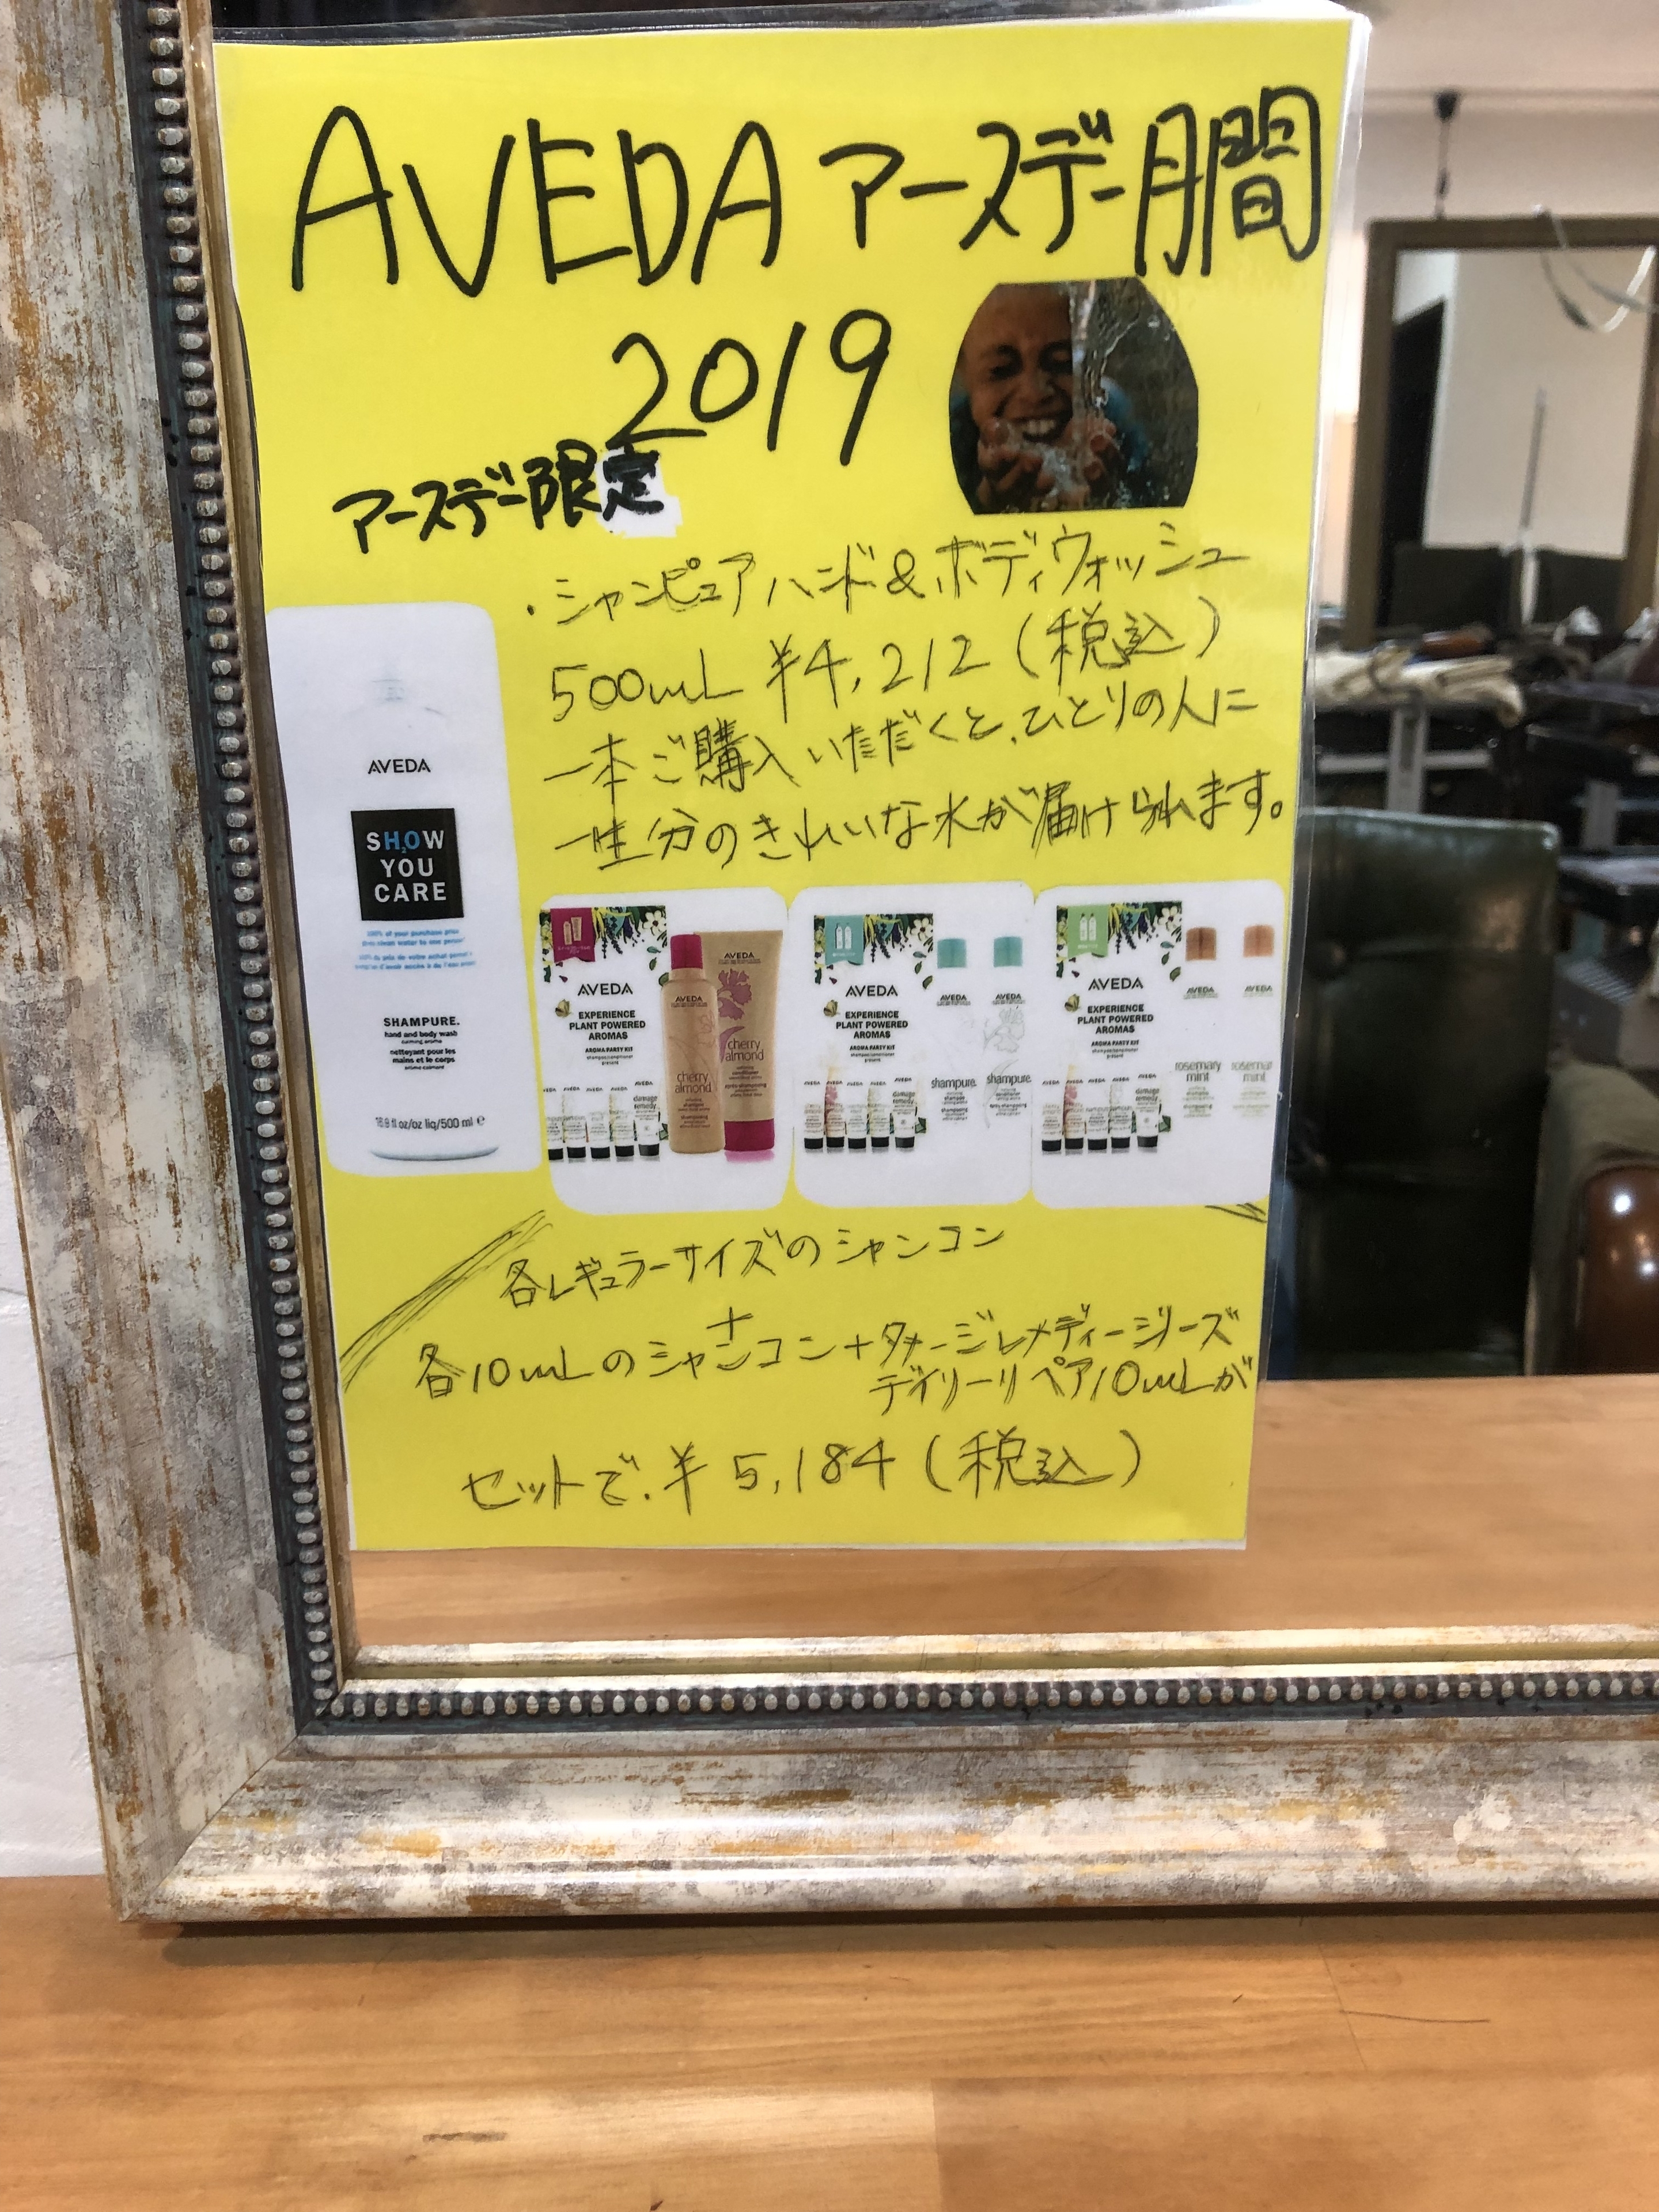 AVEDA アースデー月間
2019
アースデー限定
・シャンピュアハンド&ボディウォッシュ
500mL ¥4,212(税込)
一本ご購入いただくと、ひとりの人に
一生分のきれいな水が届けられます。
AVEDA
SH2OW
YOU
CARE
SHAMPURE.
hand and body wash
calming aroma
nettoyant pour les
mains et le corps
arôme calmant
16.9 fl oz/oz liq/500 ml e
AVEDA
EXPERIENCE
PLANT POWERED
AROMAS
AROMA PARTY KIT
AVEDA
cherry
almond
AVEDA
cherry
almond
damage
remedy
AVEDA
EXPERIENCE
PLANT POWERED
AROMAS
AROMA PARTY KIT
AVEDA
shampure.
AVEDA
shampure.
damage
remedy
AVEDA
EXPERIENCE
PLANT POWERED
AROMAS
AROMA PARTY KIT
AVEDA
rosemary
mint
AVEDA
rosemary
mint
damage
remedy
各レギュラーサイズのシャンコン
+
各10mLのシャンコン+ダメージレメディーシリーズ
デイリーリペア10mLが
セットで、¥5,184(税込)